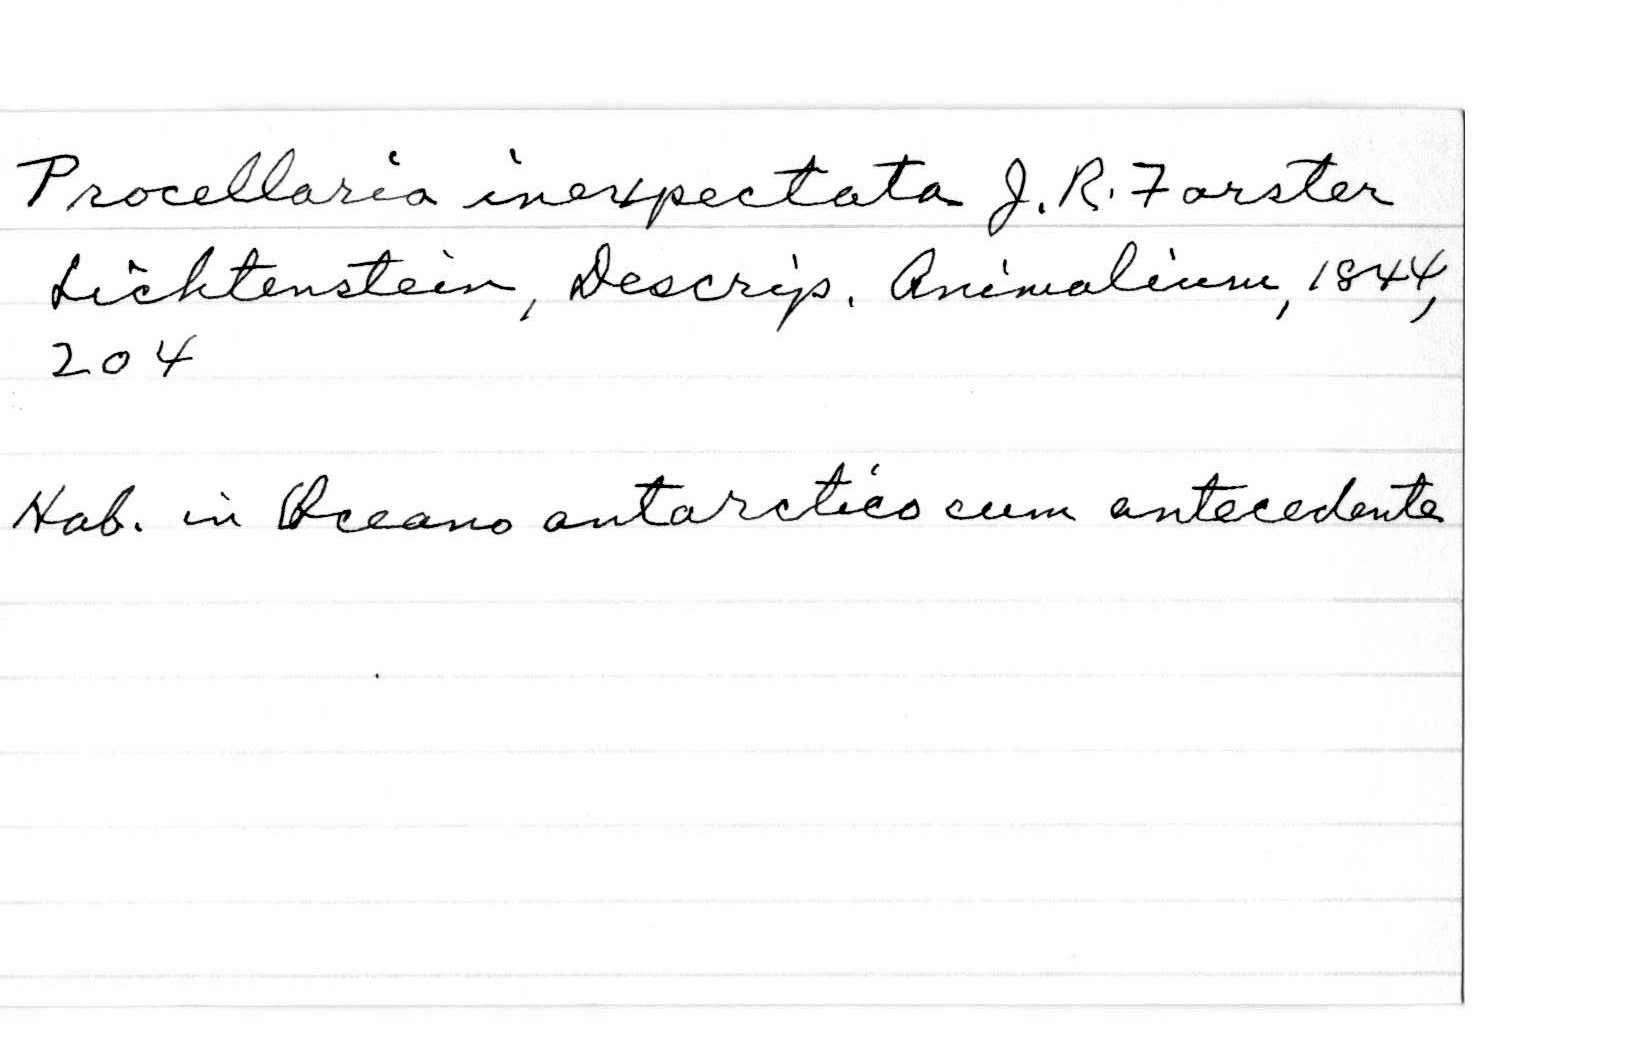 Procellaria inexpectata J. R. Forster
Lichtenstein, Descrip. Animalium, 1844,
204
Hab. in Oceano antarctico cum antecedente